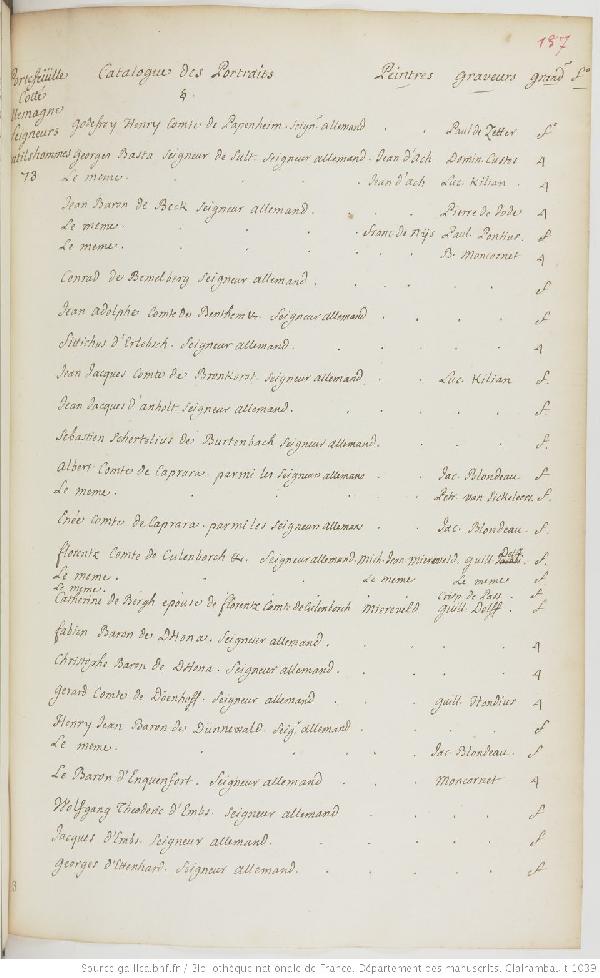 187
Portefeüille Catalogue des Portraits Peintres graveurs grand.r f.o
Cotté &.
Allemagne
Seigneurs
gentilshommes
73
Godefroy Henry Comte de Papenheim. Seign.r allemand . . Paul de Zetter f.o
Georges Basta Seigneur de Sult. Seigneur allemand. Jean d'Ach Domin. Custos 4
Le meme. . . Jean d'ach Luc. Kilian. 4
Jean Baron de Beck Seigneur allemand. . . Pierre de Jode 4
Le meme. . . . franc. de Nijs Paul. Pontius. f.
Le meme. . . . . B. Moncornet 4
Conrad de Bemelberg Seigneur allemand . . . . f.
Jean adolphe Comte de Benthem &c. Seigneur allemand . . . . f.
Sittichus d'Ertebsch. Seigneur allemand. . . . . 4
Jean Jacques Comte de Bronkorst. Seigneur allemand . . Luc. Kilian f.
Jean Jacques d'anholt. Seigneur allemand. . . . . f.
Sebastien Schertelius de Burtenback Seigneur allemand. . . . f.
Albert Comte de Caprara. parmi les Seigneurs allemans . . Jac. Blondeau. f.
Le meme. . . . . . Petr. van f.
Enée Comte de Caprara. parmi les Seigneurs allemans . . Jac. Blondeau. f.
florentz Comte de Culenborch &c. Seigneur allemand. Mich. Jean Miereveld. guill. Delff. f.
Le meme. . . . Le meme Le meme f.
Le meme. . . . . Crisp. de Pass. f.
Catherine de Bergh epouse de florentz Comte de Culenborch Miereveld guill. Delff. f.
fabien Baron de Dhona. Seigneur allemand. . . . . 4
Christophe Baron de Dhona. Seigneur allemand. . . . . 4
gerard Comte de Döenhoff. Seigneur allemand . . guill. Hondius 4
Henry Jean Baron de Dunnewald. Seig.r allemand . . . . f
Le meme. . . . . . Jac. Blondeau. f
Le Baron d'Enquenfort. Seigneur allemand . . Moncornet 4
Wolfgang Theoderic d'Embs. Seigneur allemand . . . . f
Jacques d'Embs. Seigneur allemand. . . . . f
georges d'Ettenhard. Seigneur allemand. . . . . f
Source gallica.bnf.fr / Bibliothèque nationale de France. Département des manuscrits. Clairambault 1039